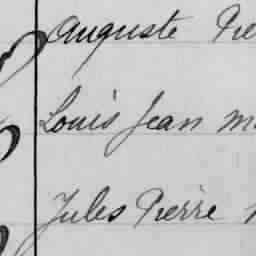 Auguste
Louis Jean
Jules Pierre